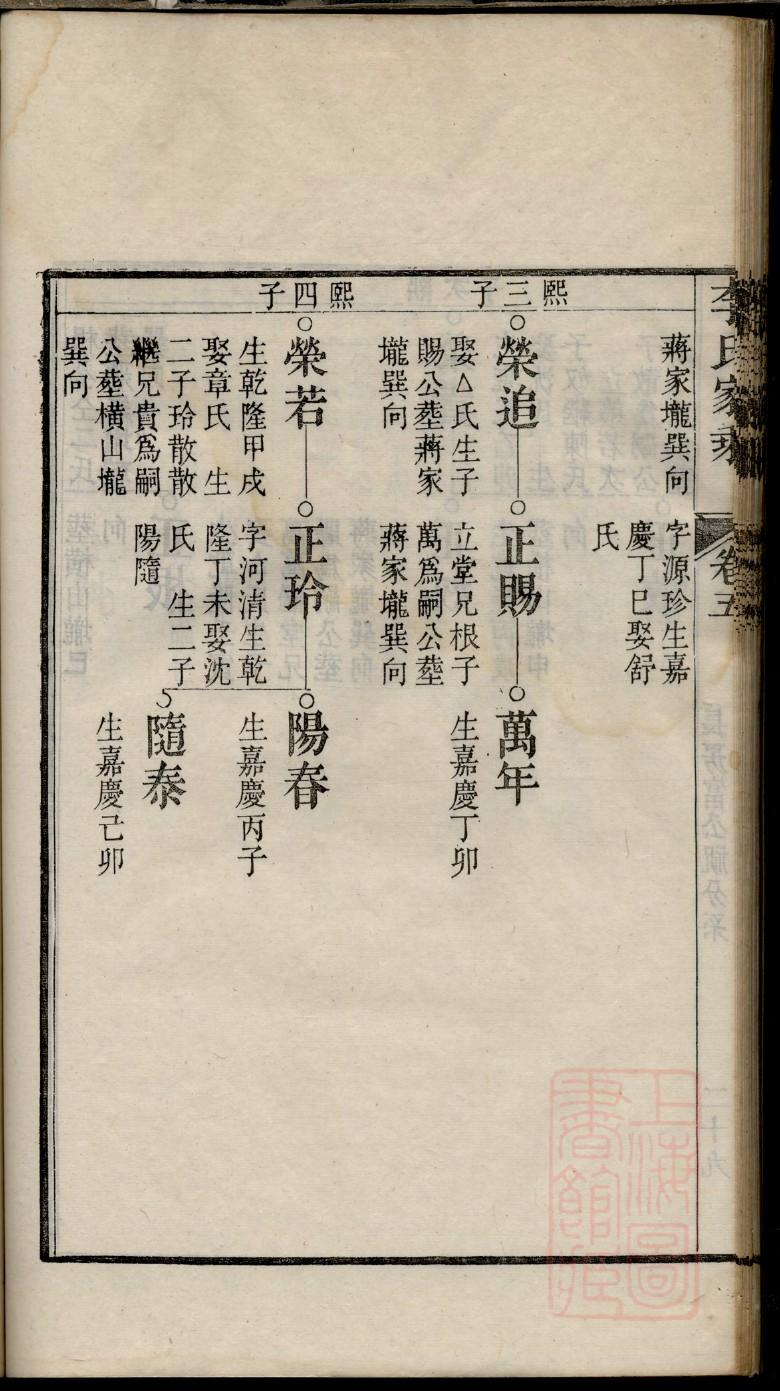 李氏家乘
卷五
蔣家壠巽向
字源珍生嘉
慶丁巳娶舒
氏
熙三子
榮追
娶△氏生子
賜公塟蔣家
壠巽向
正賜
立堂兄根子
萬爲嗣公塟
蔣家壠巽向
萬年
生嘉慶丁卯
熙四子
榮若
生乾隆甲戌
娶章氏 生
二子玲散散
繼兄貴爲嗣
公塟橫山壠
巽向
正玲
字河清生乾
隆丁未娶沈
氏 生二子
陽隨
陽春
生嘉慶丙子
隨泰
生嘉慶己卯
上海圖
書館藏